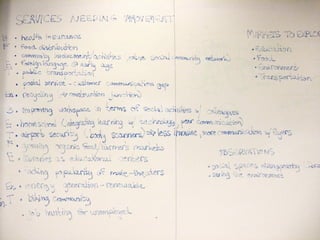 SERVICES NEEDING MOVEMENT
• health insurance
F • food distribution
• community involvement/activities (online social community network)
E • foreign language @ early age
T • public transportation
• postal service - customer communication gap
En • recycling (construction junction)
S • improving workspace in terms of social activities w/ colleagues
E • homeschool (integrating learning w/ technology, peer communication)
T • airport security (body scanners) less invasive, more communication w/ flyers
F • growing organic food/farmers markets
E • libraries as educational centers
• adding popularity of make-theaters
En • energy generation - renewable
T • biking community
• job hunting for unemployed
MARKETS TO EXPLORE
• Education
• Food
• Environment
• Transportation
OBSERVATIONS
• social spaces
• dining live environment